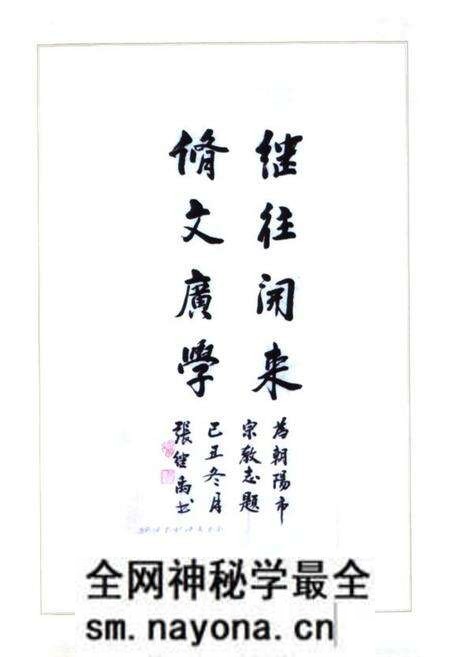 继往開来
脩文廣學
為朝陽市
宗教志題
己丑冬月
張继禹书
全网神秘学最全
sm.nayona.cn